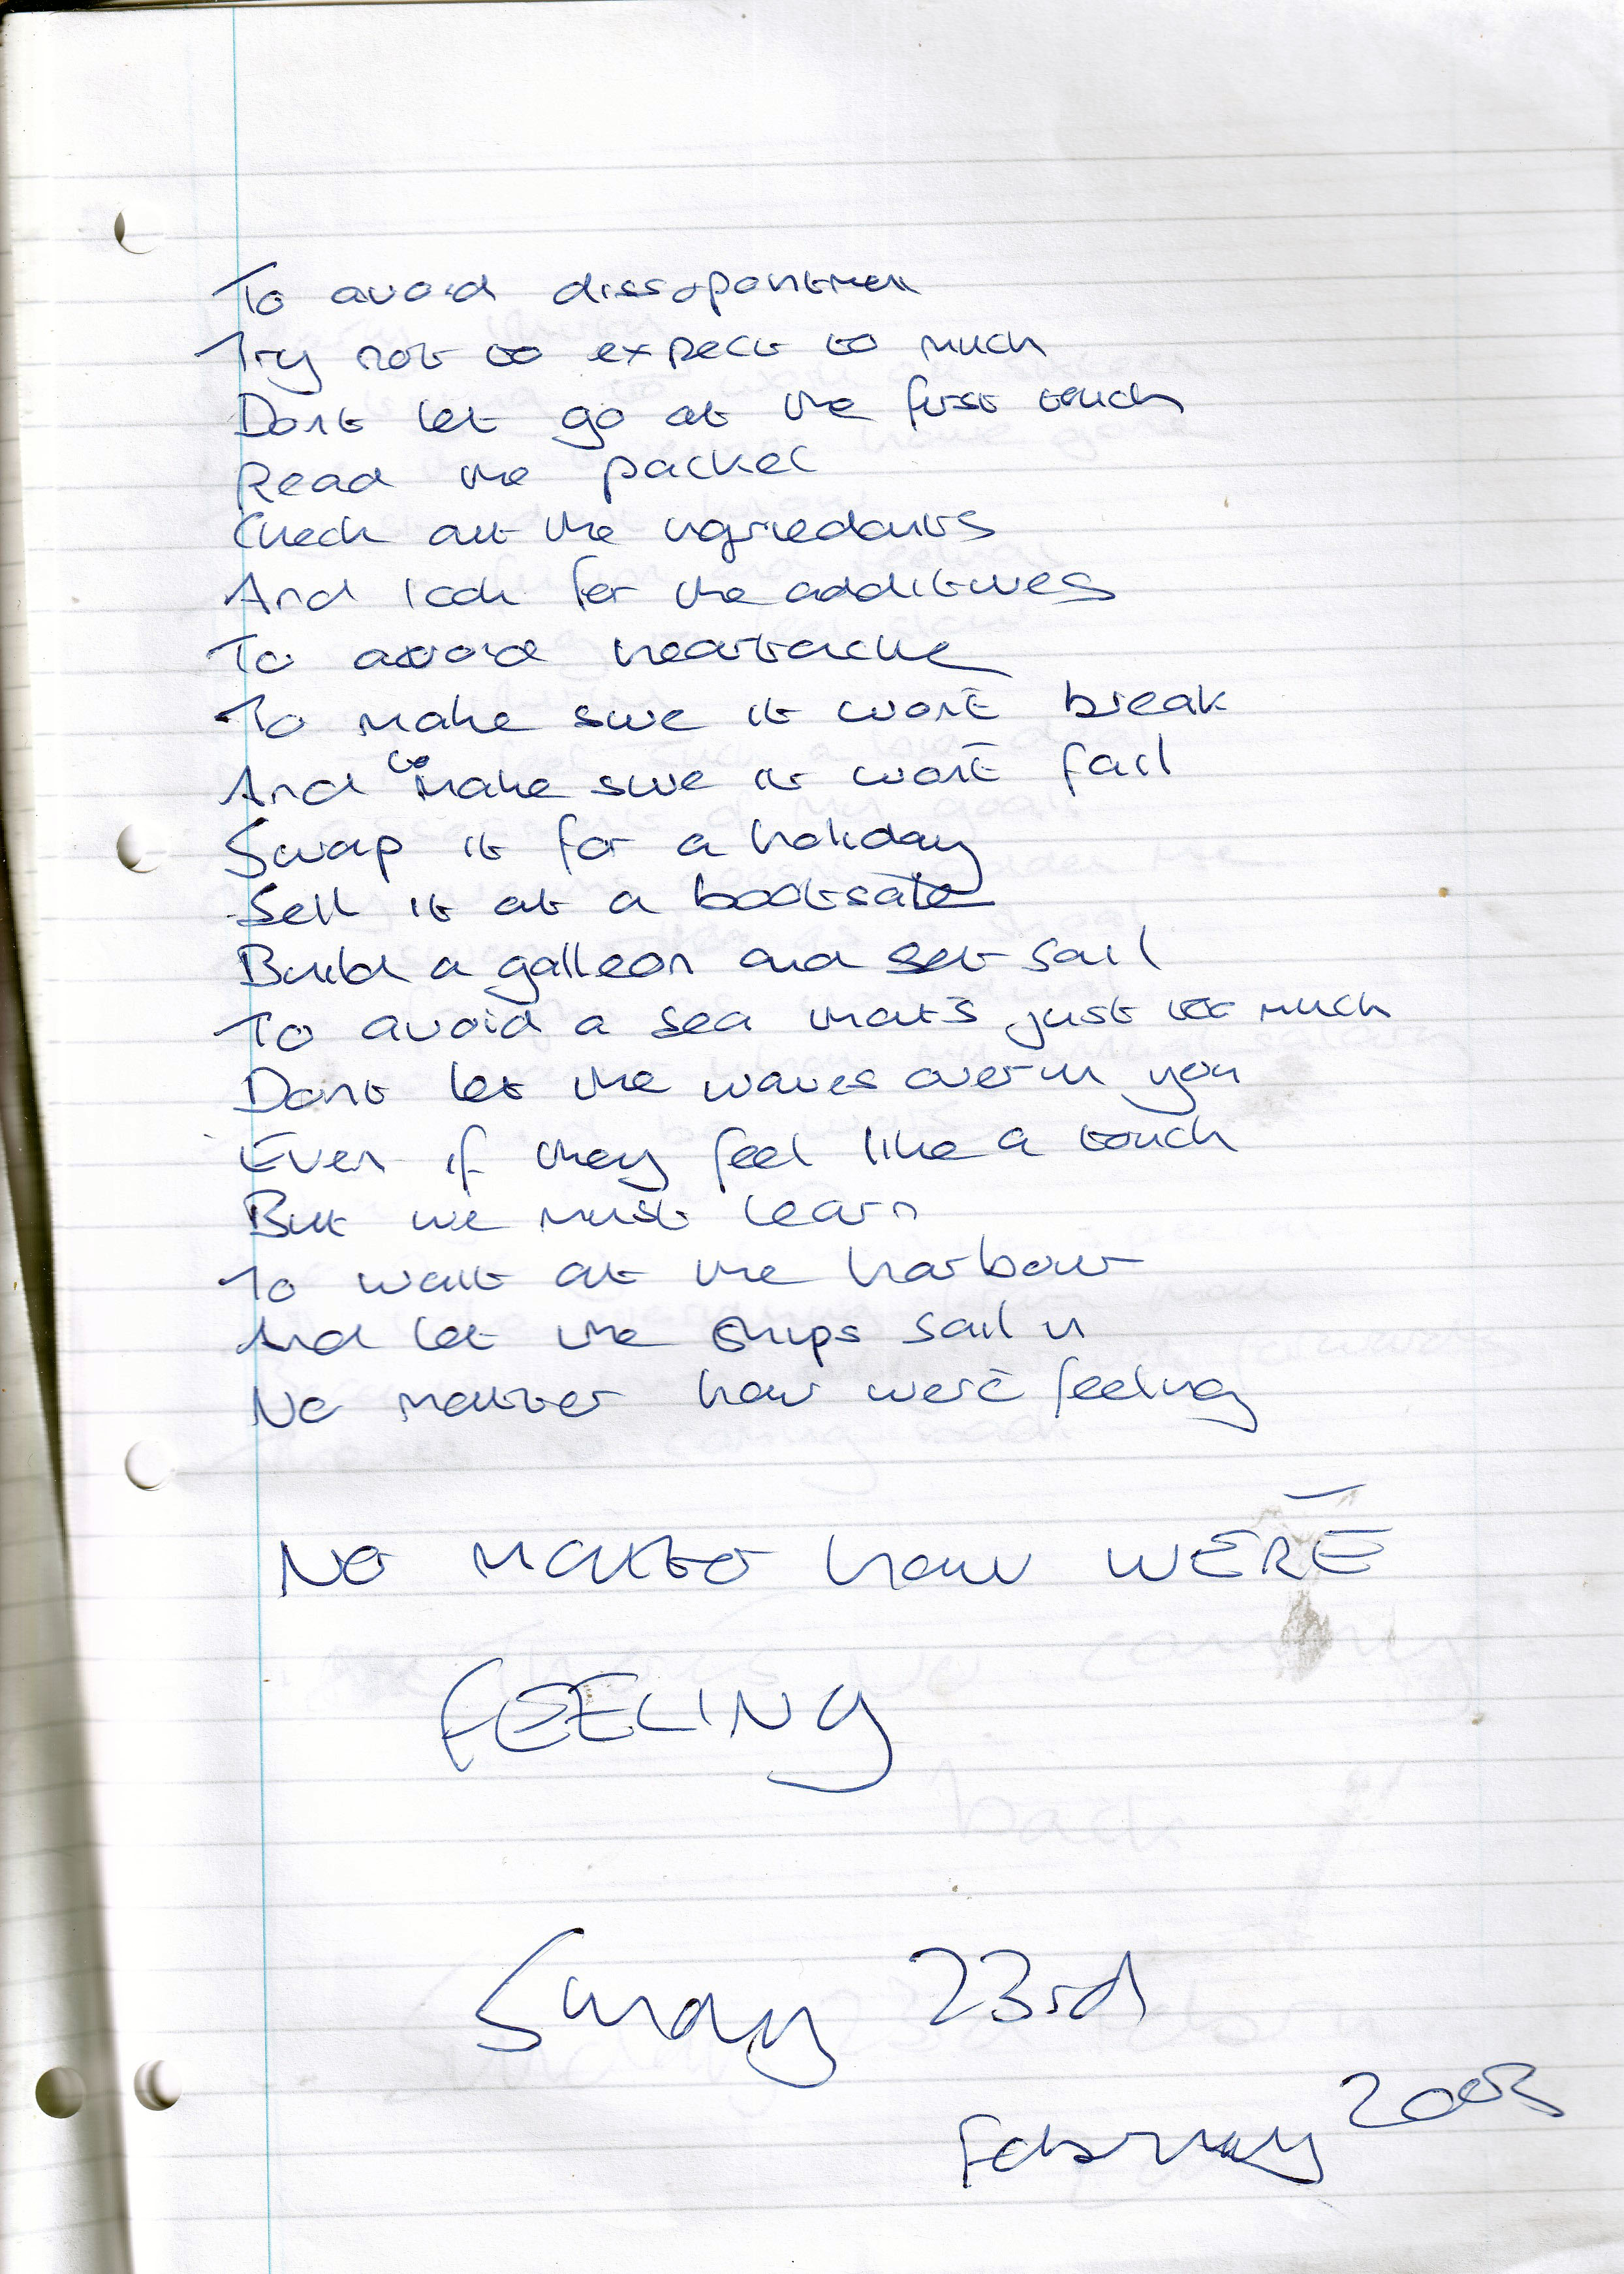 To avoid dissapontmen
Try not to expect to much
Dont let go at the first touch
Read the packet
Check out the ingriedants
And look for the additives
To avoid heartache
To make sure it wont break
And to make sure it wont fail
Swap it for a holiday
Sell it at a bootsale
Build a galleon and set sail
To avoid a sea that's just too much
Dont let the waves overrun you
Even if they feel like a touch
But we must learn
To wait at the harbour
And let the ships sail in
No matter how we're feeling
NO MATTER how WE'RE
FEELING
Sunday 23rd
February 2003